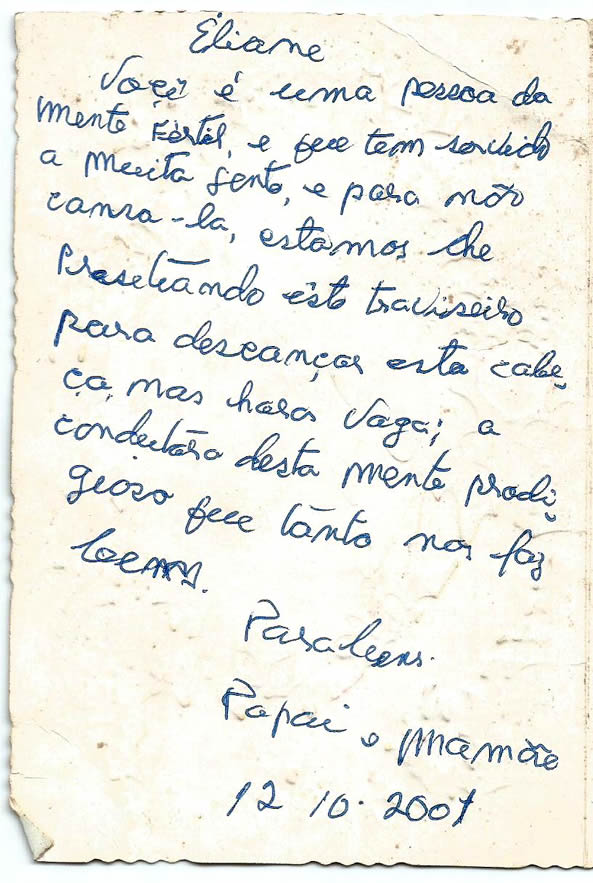 Éliane
Você é uma pessoa da
mente Fértil, e que tem servido
a muita gente, e para não
cansa-la, estamos lhe
Preseteândo êste travisseiro
para descançar esta cabe-
ça, mas horas vaga; a
condutôra desta mente prodi-
giosa que tânto nos faz
bem.
Parabens.
Papai e Mamãe
12 10. 2001